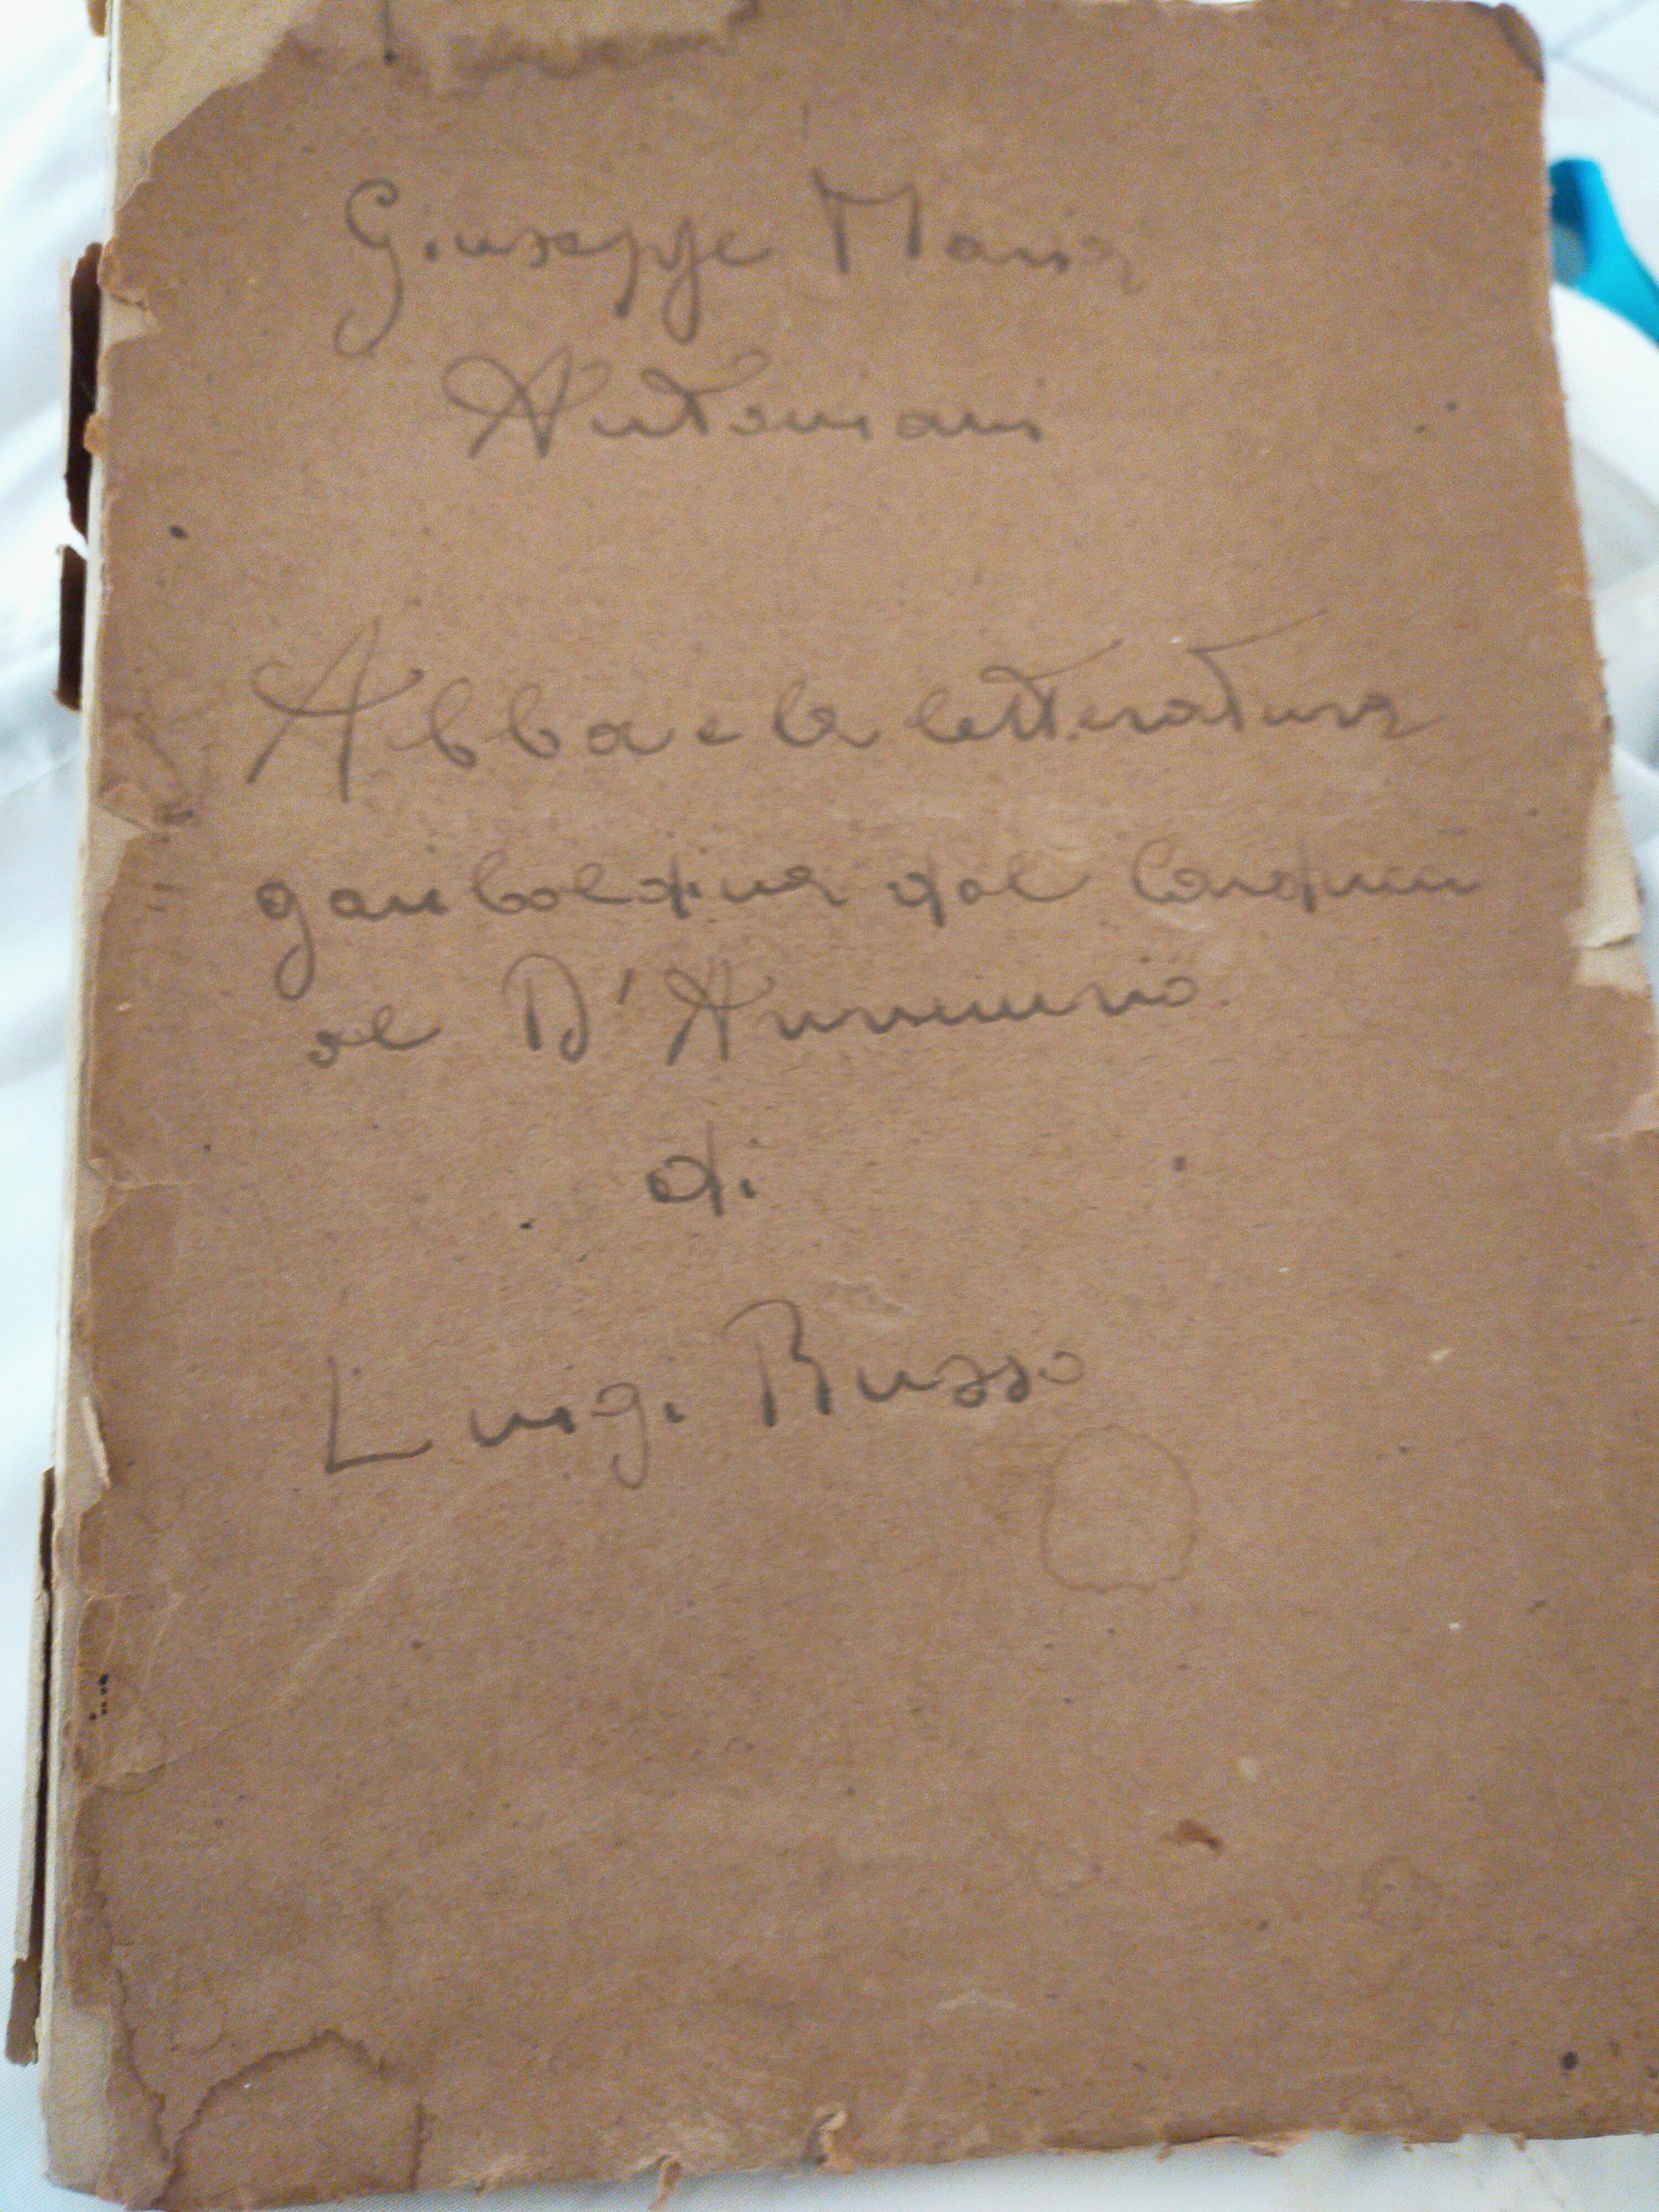 Giuseppe Maria
Abba e la letteratura
garibaldina dal Carducci
al D'Annunzio
di
Luigi Russo